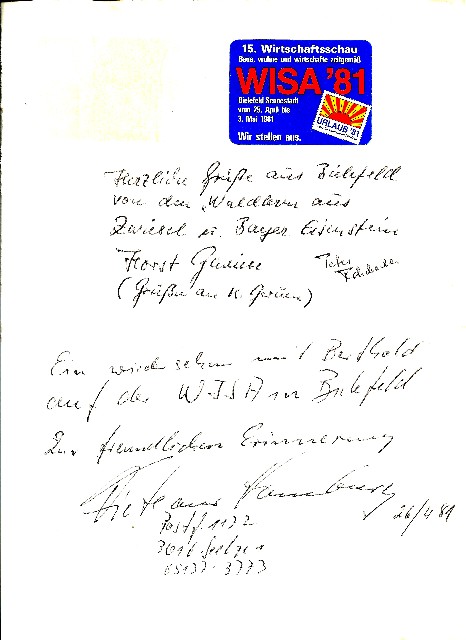 15. Wirtschaftsschau
Baue, wohne und wirtschafte zeitgemäß
WISA '81
Bielefeld Sennestadt
vom 25. April bis
3. Mai 1981
URLAUB '81
Wir stellen aus.
Herzliche Grüße aus Bielefeld
von den Waldlern aus
Zwiesel u. Bayer Eisenstein
Horst
Peter
(Grüße an H.
Ein wiedersehen mit Berthold
auf der WISA in Bielefeld
Zur freundlichen Erinnerung
aus
26/4 81
Postf. 1172
3016 Seelze 1
05137-3773